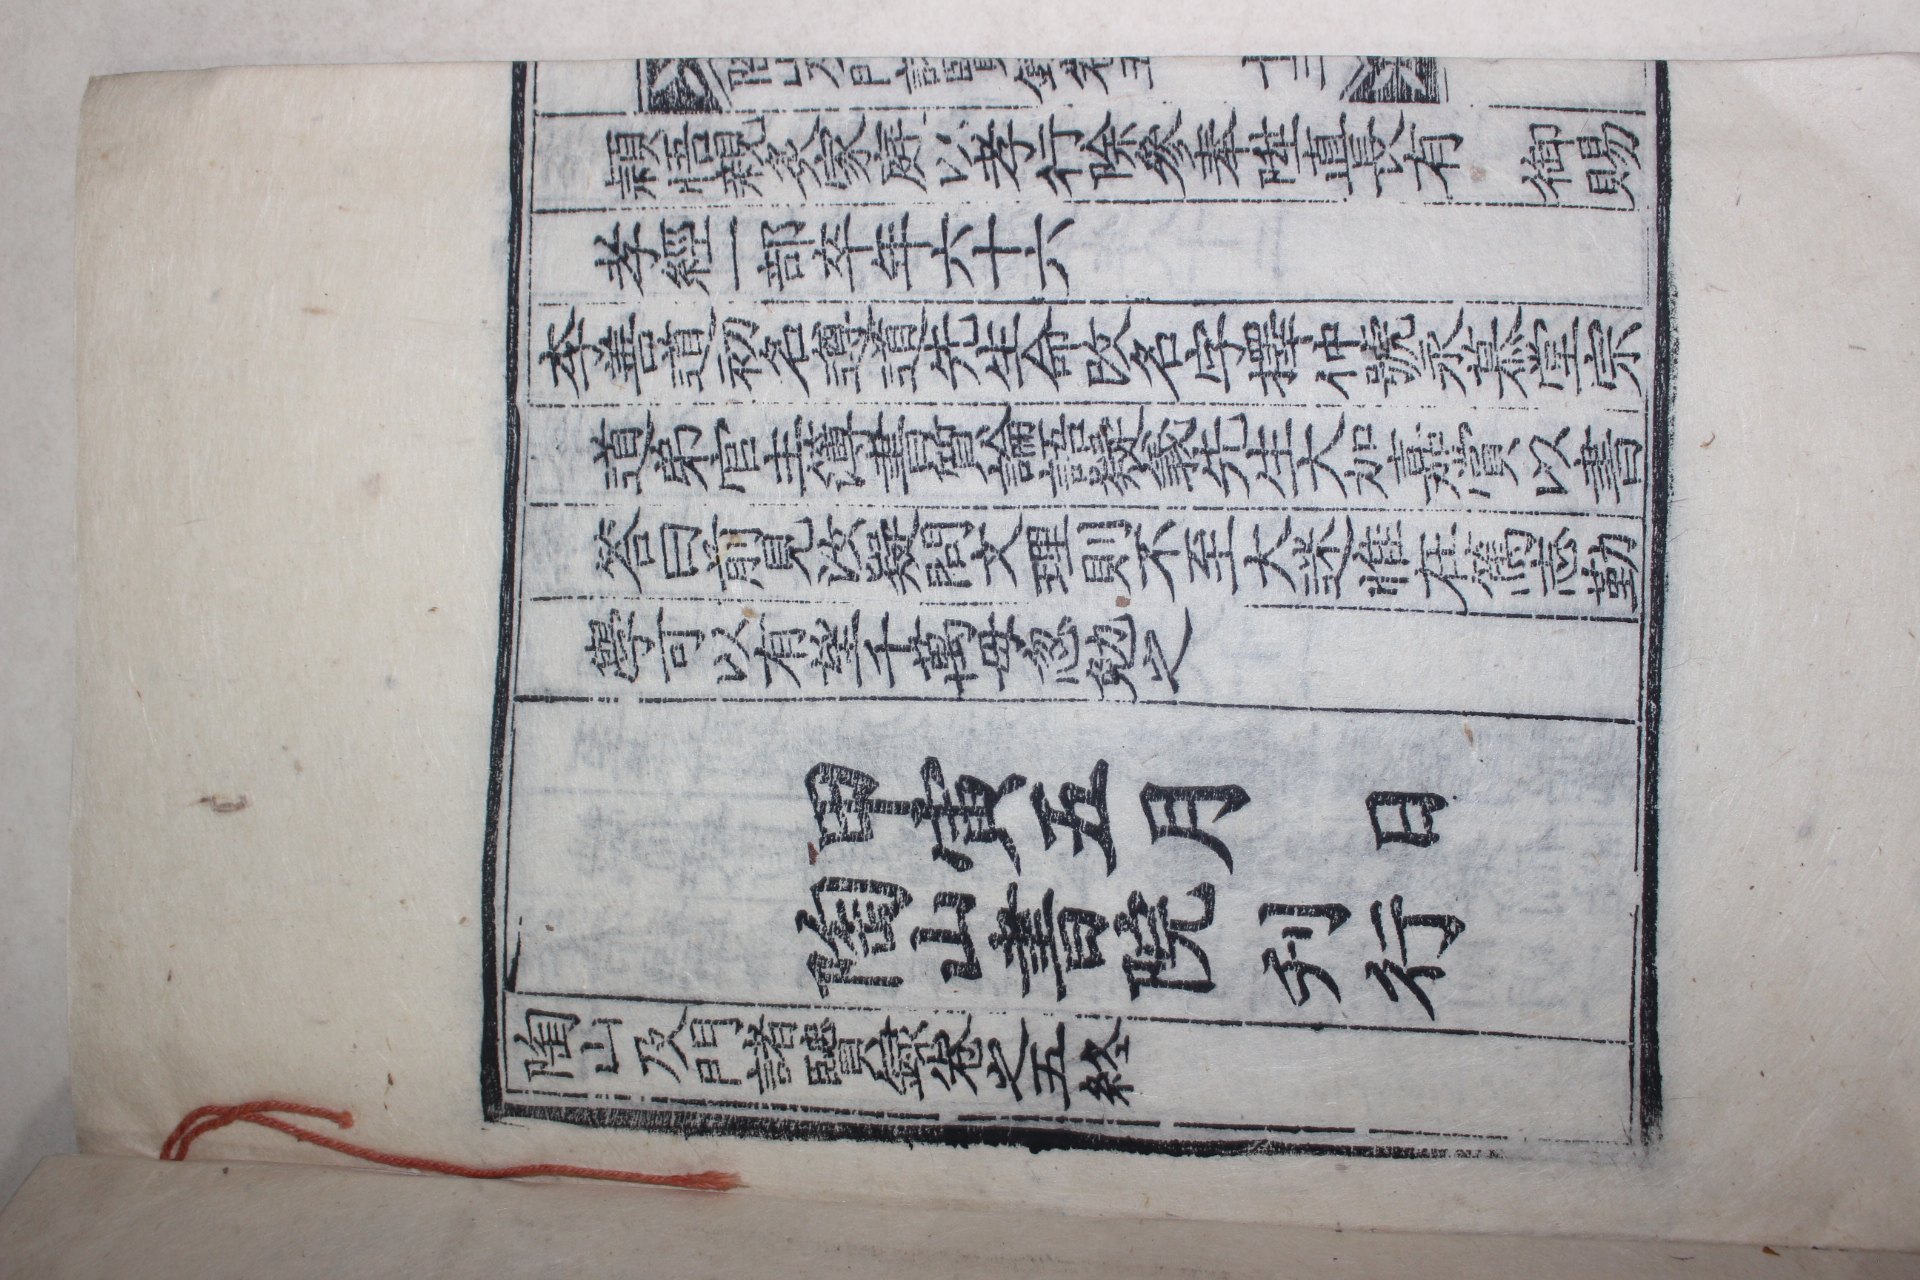 陶山及門諸賢錄卷五 十三
穎悟親炙家庭以孝行除參奉陞直長有 御賜
孝經一部卒年六十六
李善道初名遵道先生命改名字擇仲號永慕堂宗
道弟官主簿書質論語疑義先生大加嘉賞以書
答曰前見汝疑問文理則不至大迷惟在篤志勤
學可以有望千萬毋忽勉之
甲寅五月 日
陶山書院 刊行
陶山及門諸賢錄卷之五終